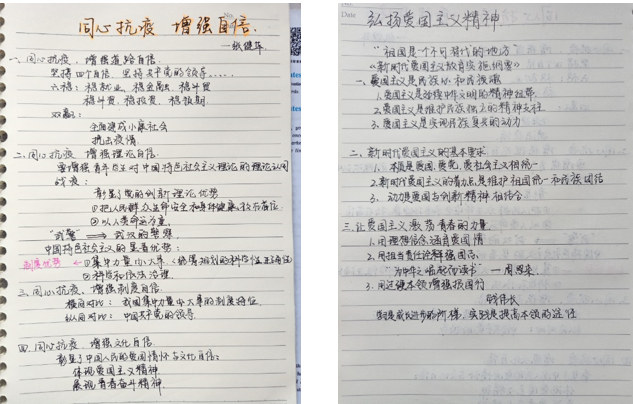 同心抗疫 增强自信.
一、同心抗疫，增强道路自信.
坚持四个自信，坚持共产党的领导……
六稳：稳就业、稳金融、稳外贸
稳外资、稳投资、稳预期.
双赢：
全面建成小康社会
抗击疫情.
二、同心抗疫，增强理论自信.
要增强青年学生对中国特色社会主义理论的理论认同
战疫：
彰显了党的创新理论优势
①把人民群众生命安全和身体健康放在首位.
②以人类命运为重.
"武警" ⟹ 武汉的警察
中国特色社会主义的显著优势：
制度优势 ← ①集中力量办大事
②科学和依法治理
三、同心抗疫，增强制度自信.
横向对比：我国集中力量办大事的制度特征
纵向对比：中国共产党的领导
四、同心抗疫，增强文化自信.
彰显了中国人民的爱国情怀与文化自信：
体现爱国主义精神
展现青春奋斗精神
Date
弘扬爱国主义精神.
"祖国是个不可替代的地方
《新时代爱国主义教育实施纲要》
一、爱国主义是民族心和民族魂
1.爱国主义是延续中华文明的精神纽带.
2.爱国主义是维护民族独立的精神支柱
3.爱国主义是实现民族复兴的动力
二、新时代爱国主义的基本要求
1.本质是爱国、爱党、爱社会主义相统一
2.新时代爱国主义的着力点是维护祖国统一和民族团结
3.动力是爱国与创新精神相结合
三、让爱国主义激荡青春的力量
1.用理想信念涵育爱国情
2.用担当责任诠释强国志.
"为中华之崛起而读书" —周恩来.
3.用过硬本领增强报国行